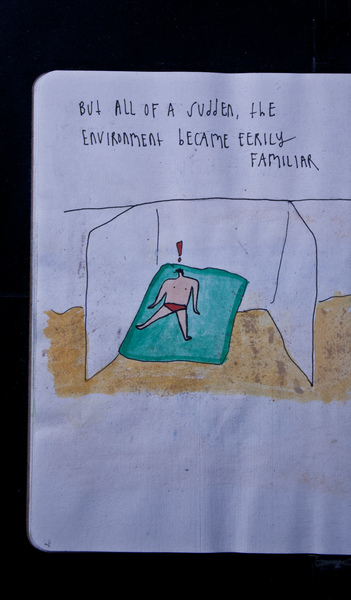 BUT ALL OF A SUDDEN, THE
ENVIRONMENT BECAME EERILY
FAMILIAR
!